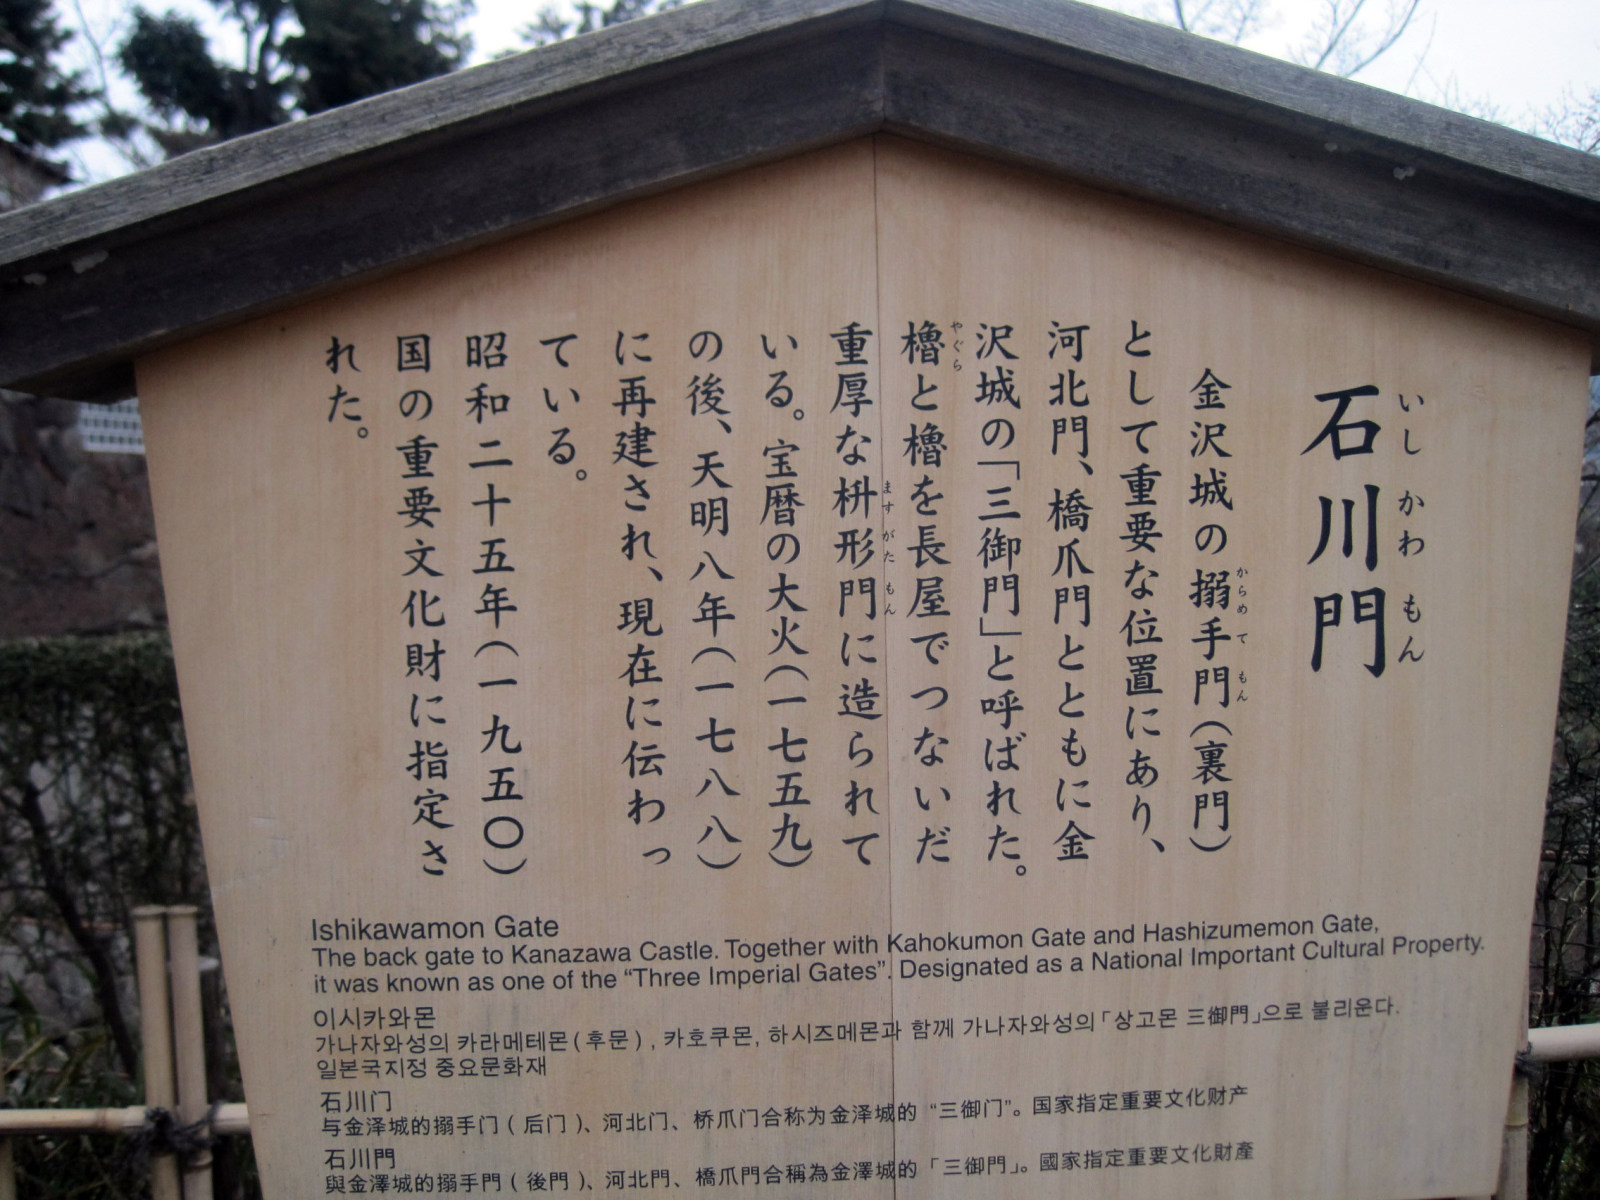 石川門
いしかわもん
金沢城の搦手門（裏門）
からめてもん
として重要な位置にあり、
河北門、橋爪門とともに金
沢城の「三御門」と呼ばれた。
櫓と櫓を長屋でつないだ
やぐら
重厚な枡形門に造られて
ますがたもん
いる。宝暦の大火（一七五九）
の後、天明八年（一七八八）
に再建され、現在に伝わっ
ている。
昭和二十五年（一九五〇）
国の重要文化財に指定さ
れた。
Ishikawamon Gate
The back gate to Kanazawa Castle. Together with Kahokumon Gate and Hashizumemon Gate,
it was known as one of the “Three Imperial Gates”. Designated as a National Important Cultural Property.
이시카와몬
가나자와성의 카라메테몬(후문), 카호쿠몬, 하시즈메몬과 함께 가나자와성의「상고몬 三御門」으로 불리운다.
일본국지정 중요문화재
石川门
与金泽城的搦手门(后门)、河北门、桥爪门合称为金泽城的“三御门”。国家指定重要文化财产
石川門
與金澤城的搦手門(後門)、河北門、橋爪門合稱為金澤城的「三御門」。國家指定重要文化財產